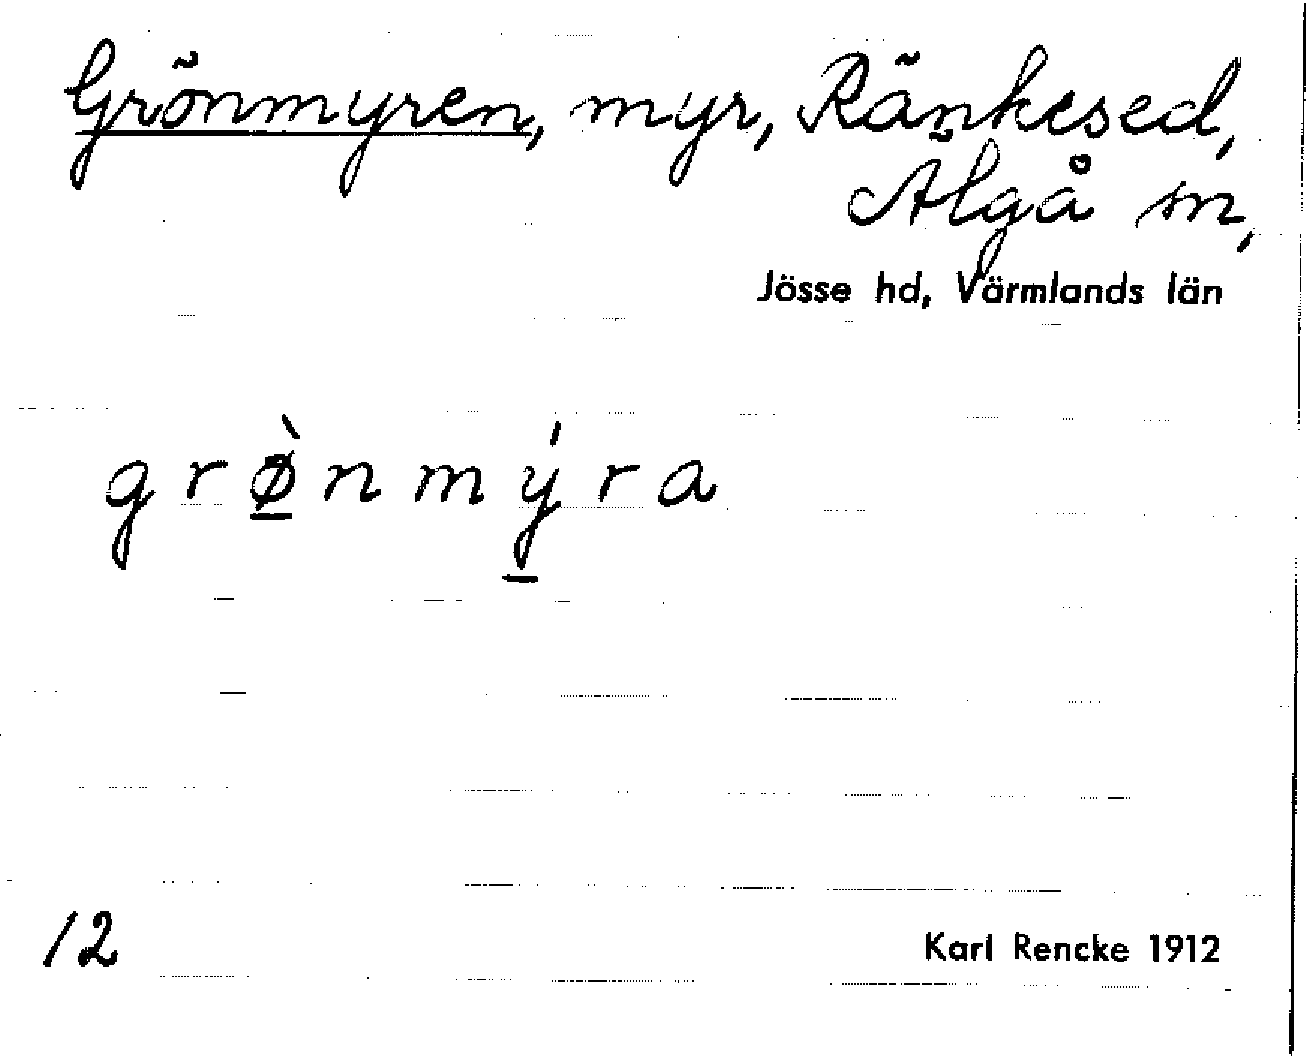 Grönmyren, myr, Ränkesed,
Älgå sn,
Jösse hd, Värmlands län
grø̠̀nmý̠ra
12
Karl Rencke 1912